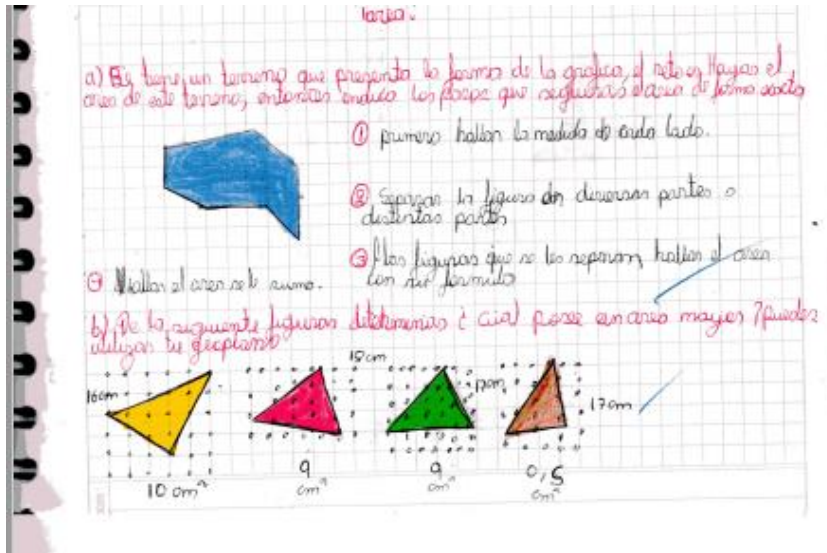 Tarea.
a) Se tiene un terreno que presenta la forma de la grafica, el reto es Hayar el
area de este terreno, entonces indica los pasos que seguirias el area de forma exacta
① primero hallar la medida de cada lado.
② Separar la figura en diversas partes o
distintas partes
③ las figuras que se les separan, hallar el area
con su formula
Hallar el area se le suma.
b) De la siguiente figuras determinas ¿ cual posee un area mayor ? puedes
utilizar tu geoplano
18cm
16cm
17cm
17cm
10 cm²
9
cm²
9
cm²
0,5
cm²